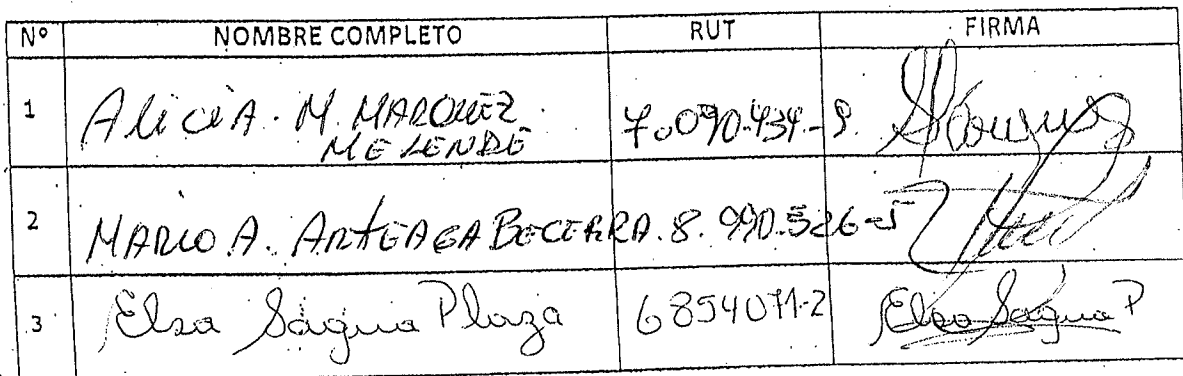 Nº NOMBRE COMPLETO RUT FIRMA
1 Alicia. M. MARQUEZ 7.090.434-9.
MELENDE
2 MARIO A. ARTEAGA BECERRA. 8.990.526-5
3 Elsa Sagua Plaza 6854071-2 Elsa Sagua P